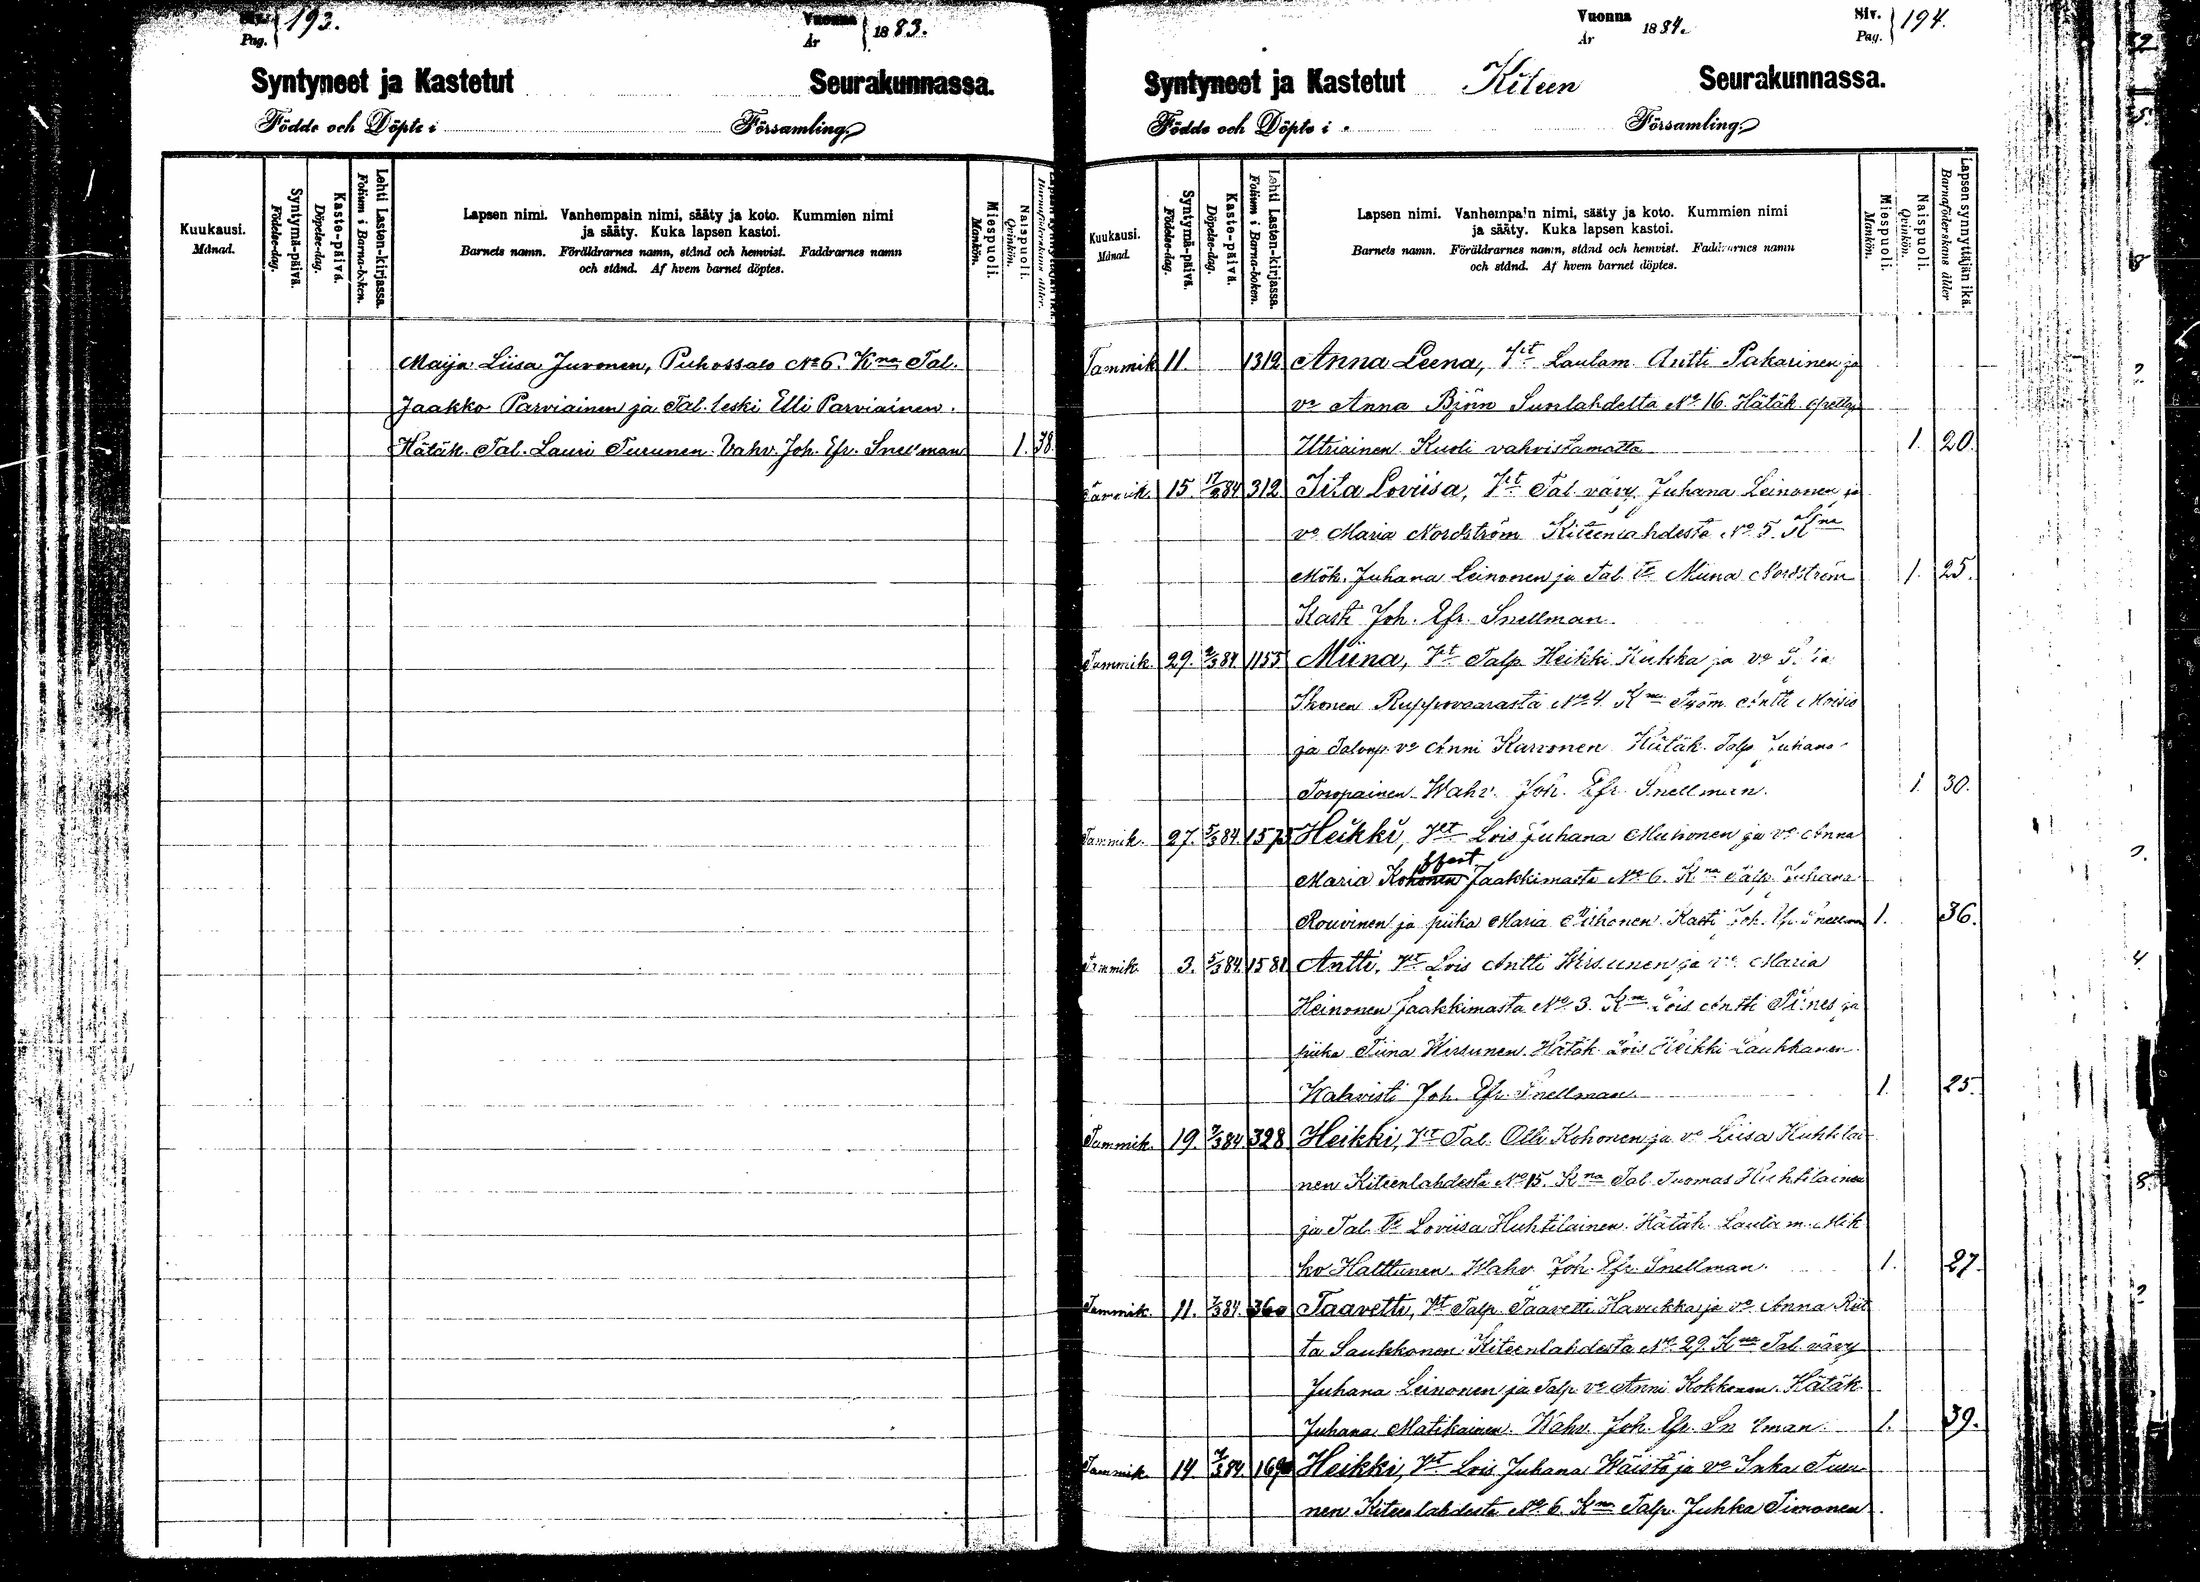 Pag. 193.
Vuonna
År 1883.
Syntyneet ja Kastetut Seurakunnassa.
Födde och Döpte i Församling
Kuukausi.
Månad.
Syntymä-päivä.
Födelse-dag.
Kaste-päivä.
Döpelse-dag.
Lehti Lasten-kirjassa.
Folium i Barna-boken.
Lapsen nimi. Vanhempain nimi, sääty ja koto. Kummien nimi
ja sääty. Kuka lapsen kastoi.
Barnets namn. Föräldrarnes namn, stånd och hemvist. Faddrarnes namn
och stånd. Af hvem barnet döptes.
Miespuoli.
Mankön.
Naispuoli.
Qvinkön.
Maija Liisa Juvonen, Puhossalo No 6. Kna Tal.
Jaakko Parviainen ja Tal. leski Elli Parviainen.
Hätäk. Tal. Lauri Turunen. Vahv. Joh. Efr. Snellman 1. 38.
Vuonna
År 1884.
Siv.
Pag. 194.
Syntyneet ja Kastetut Kiteen Seurakunnassa.
Födde och Döpte i Församling
Kuukausi.
Månad.
Syntymä-päivä.
Födelse-dag.
Kaste-päivä.
Döpelse-dag.
Lehti Lasten-kirjassa.
Folium i Barna-boken.
Lapsen nimi. Vanhempain nimi, sääty ja koto. Kummien nimi
ja sääty. Kuka lapsen kastoi.
Barnets namn. Föräldrarnes namn, stånd och hemvist. Faddrarnes namn
och stånd. Af hvem barnet döptes.
Miespuoli.
Mankön.
Naispuoli.
Qvinkön.
Lapsen synnyttäjän ikä.
Barnaföderskans ålder
Tammik 11. 1312 Anna Leena, Vt Lautam. Antti Pakarinen ja
vo Anna Björn Suorlahdelta No 16. Hätäk.
Utriainen Kuoli vahvistamatta 1. 20.
Tammik. 15. 17/2 84 312 Iita Loviisa, Vt Tal. vävy Juhana Leinonen ja
vo Maria Nordström Kiteenlahdesta No 5. Kna
Mök. Juhana Leinonen ja Tal. tr Miina Nordström 1. 25.
Kasti Joh. Efr. Snellman
Tammik. 29. 2/3 84 1155 Miina, Vt Talp. Heikki Kukka ja vo
Ikonen Ruppovaarasta No 4. Kna Työm. Antti Moisio
ja Talonp. vo Anni Karvonen Hätäk. Talp. Juhana
Toropainen Wahv. Joh. Efr. Snellman. 1. 30.
Tammik. 27. 5/3 84. 1575 Heikki, Vt Lois Juhana Muhonen ja vo Anna
Maria Kohonen Jaakkimasta No 6. Kna Talp. Juhana
Rouvinen ja piika Maria Kasti Joh. Efr. Snellman 1. 36.
Tammik. 3. 5/3 84. 1581 Antti, Vt Lois Antti Hirsunen ja vo Maria
Heinonen Jaakkimasta No 3. Kna Lois Antti Piines ja
piika Tiina Hirsunen Hätäk. Lois Heikki Laukkanen.
Wahvisti Joh. Efr. Snellman. 1. 25.
Tammik. 19. 7/3 84 328 Heikki, Vt Tal. Olli Kohonen ja vo Liisa Huhtilai
nen Kiteenlahdesta No 15. Kna Tal. Tuomas Huhtilainen
ja Tal. tr Loviisa Huhtilainen. Hätäk. Lautam. Mik
ko Halttunen. Wahv. Joh. Efr. Snellman. 1. 27.
Tammik. 11. 7/3 84. 360 Taavetti, Vt Talp. Taavetti Havukka ja vo Anna Riit
ta Saukkonen Kiteenlahdesta No 29. Kna Tal. vävy
Juhana Leinonen ja Talp. vo Anni Kokkonen. Hätäk.
Juhana Matikainen. Wahv. Joh. Efr. Snellman. 1. 39.
Tammik. 14. 7/3 84 Heikki, Vt Lois Juhana Wäistö ja vo Inka Turu
nen Kiteenlahdesta No 6. Kna Talp. Juhka Timonen